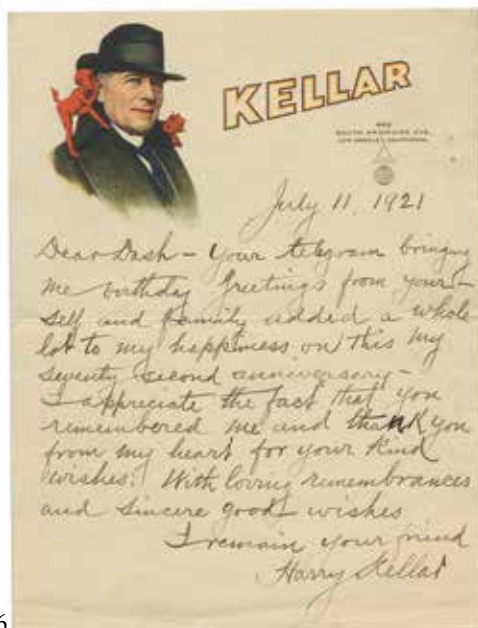 KELLAR
SOUTH ARDMORE AVE.
LOS ANGELES, CALIFORNIA
July 11, 1921
Dear Dash - Your telegram bringing
me birthday Greetings from your-
self and family added a whole
lot to my happiness on this my
seventy second anniversary -
I appreciate the fact that you
remembered me and thank you
from my heart for your kind
wishes. With loving remembrances
and sincere good wishes
I remain your friend
Harry Kellar
6